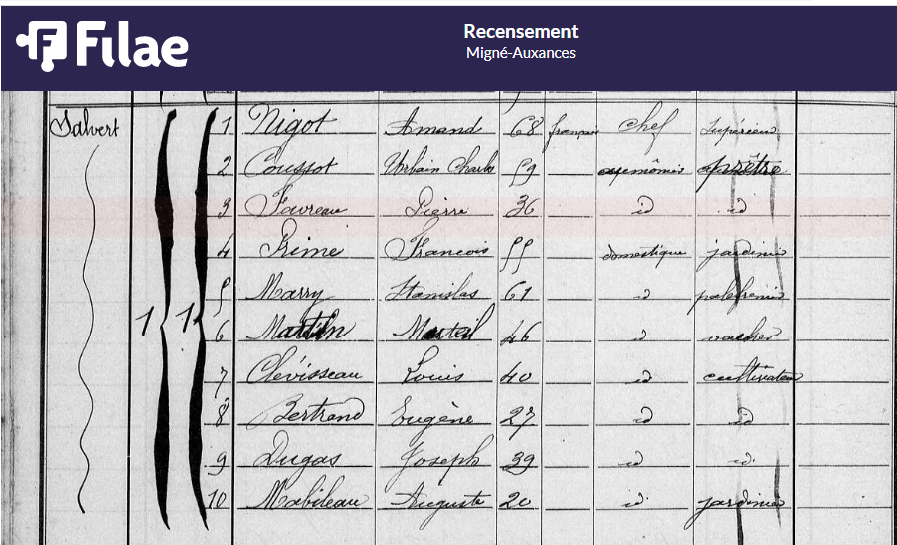 Filae
Recensement
Migné-Auxances
Salvert 1 1 1 Nigot Amand 68 français chef Supérieur
2 Coussot Urbain Charles 59 aumônier prêtre
3 Favreau Pierre 36 id id
4 Prime Francois 55 domestique jardinier
5 Marry Stanislas 61 id palefrenier
6 Martin 46 id vacher
7 Clévisseau Louis 40 id cultivateur
8 Bertrand Eugène 27 id id
9 Dugas Joseph 39 id id
10 Mabileau Auguste 20 id jardinier